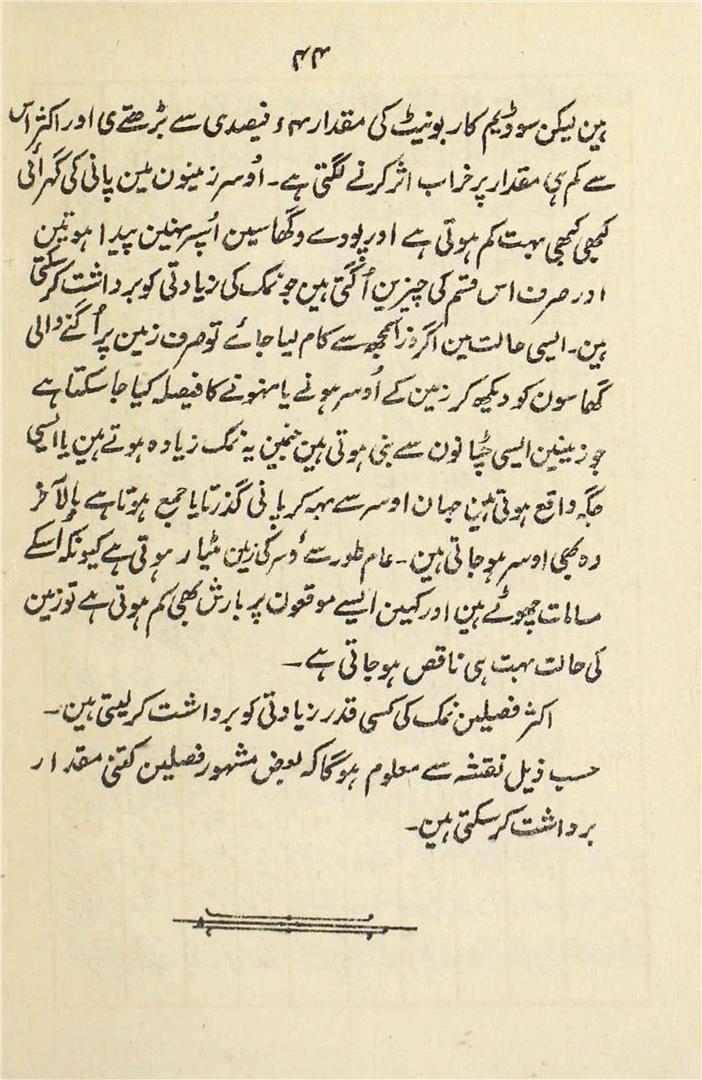 ۴۴
ہین لیکن سوڈیم کاربونیٹ کی مقدار ۴ء فیصدی سے بڑھتے ہی اور اکثر اس
سے کم ہی مقدار پر خراب اثر کرنے لگتی ہے۔ اُوسر زمینون مین پانی کی گہرائی
کبھی کبھی بہت کم ہوتی ہے اور پودے وگھاسین اُسپر نہین پیدا ہوتین
اور صرف اس قسم کی چیزین اُگتی ہین جو نمک کی زیادتی کو برداشت کرسکتی
ہین۔ ایسی حالت مین اگر ذرا سمجھ سے کام لیا جائے تو صرف زمین پر اُگنے والی
گھاسون کو دیکھ کر زمین کے اُوسر ہونے یا نہونے کا فیصلہ کیا جا سکتا ہے
جو زمینین ایسی چٹانون سے بنی ہوتی ہین جنمین یہ نمک زیادہ ہوتے ہین یا ایسی
جگہ واقع ہوتی ہین جہان اوسر سے بہہ کر پانی گذرتا یا جمع ہوتا ہے بالآخر
وہ بھی اوسر ہو جاتی ہین۔ عام طور سے اُوسر کی زمین مٹیار ہوتی ہے کیونکہ اُسکے
مسامات چھوٹے ہین اور کہین ایسے موقعون پر بارش بھی کم ہوتی ہے تو زمین
کی حالت بہت ہی ناقص ہو جاتی ہے۔
اکثر فصیلین نمک کی کسی قدر زیادتی کو برداشت کرلیتی ہین۔
حسب ذیل نقشہ سے معلوم ہوگا کہ بعض مشہور فصیلین کتنی مقدار
برداشت کرسکتی ہین۔